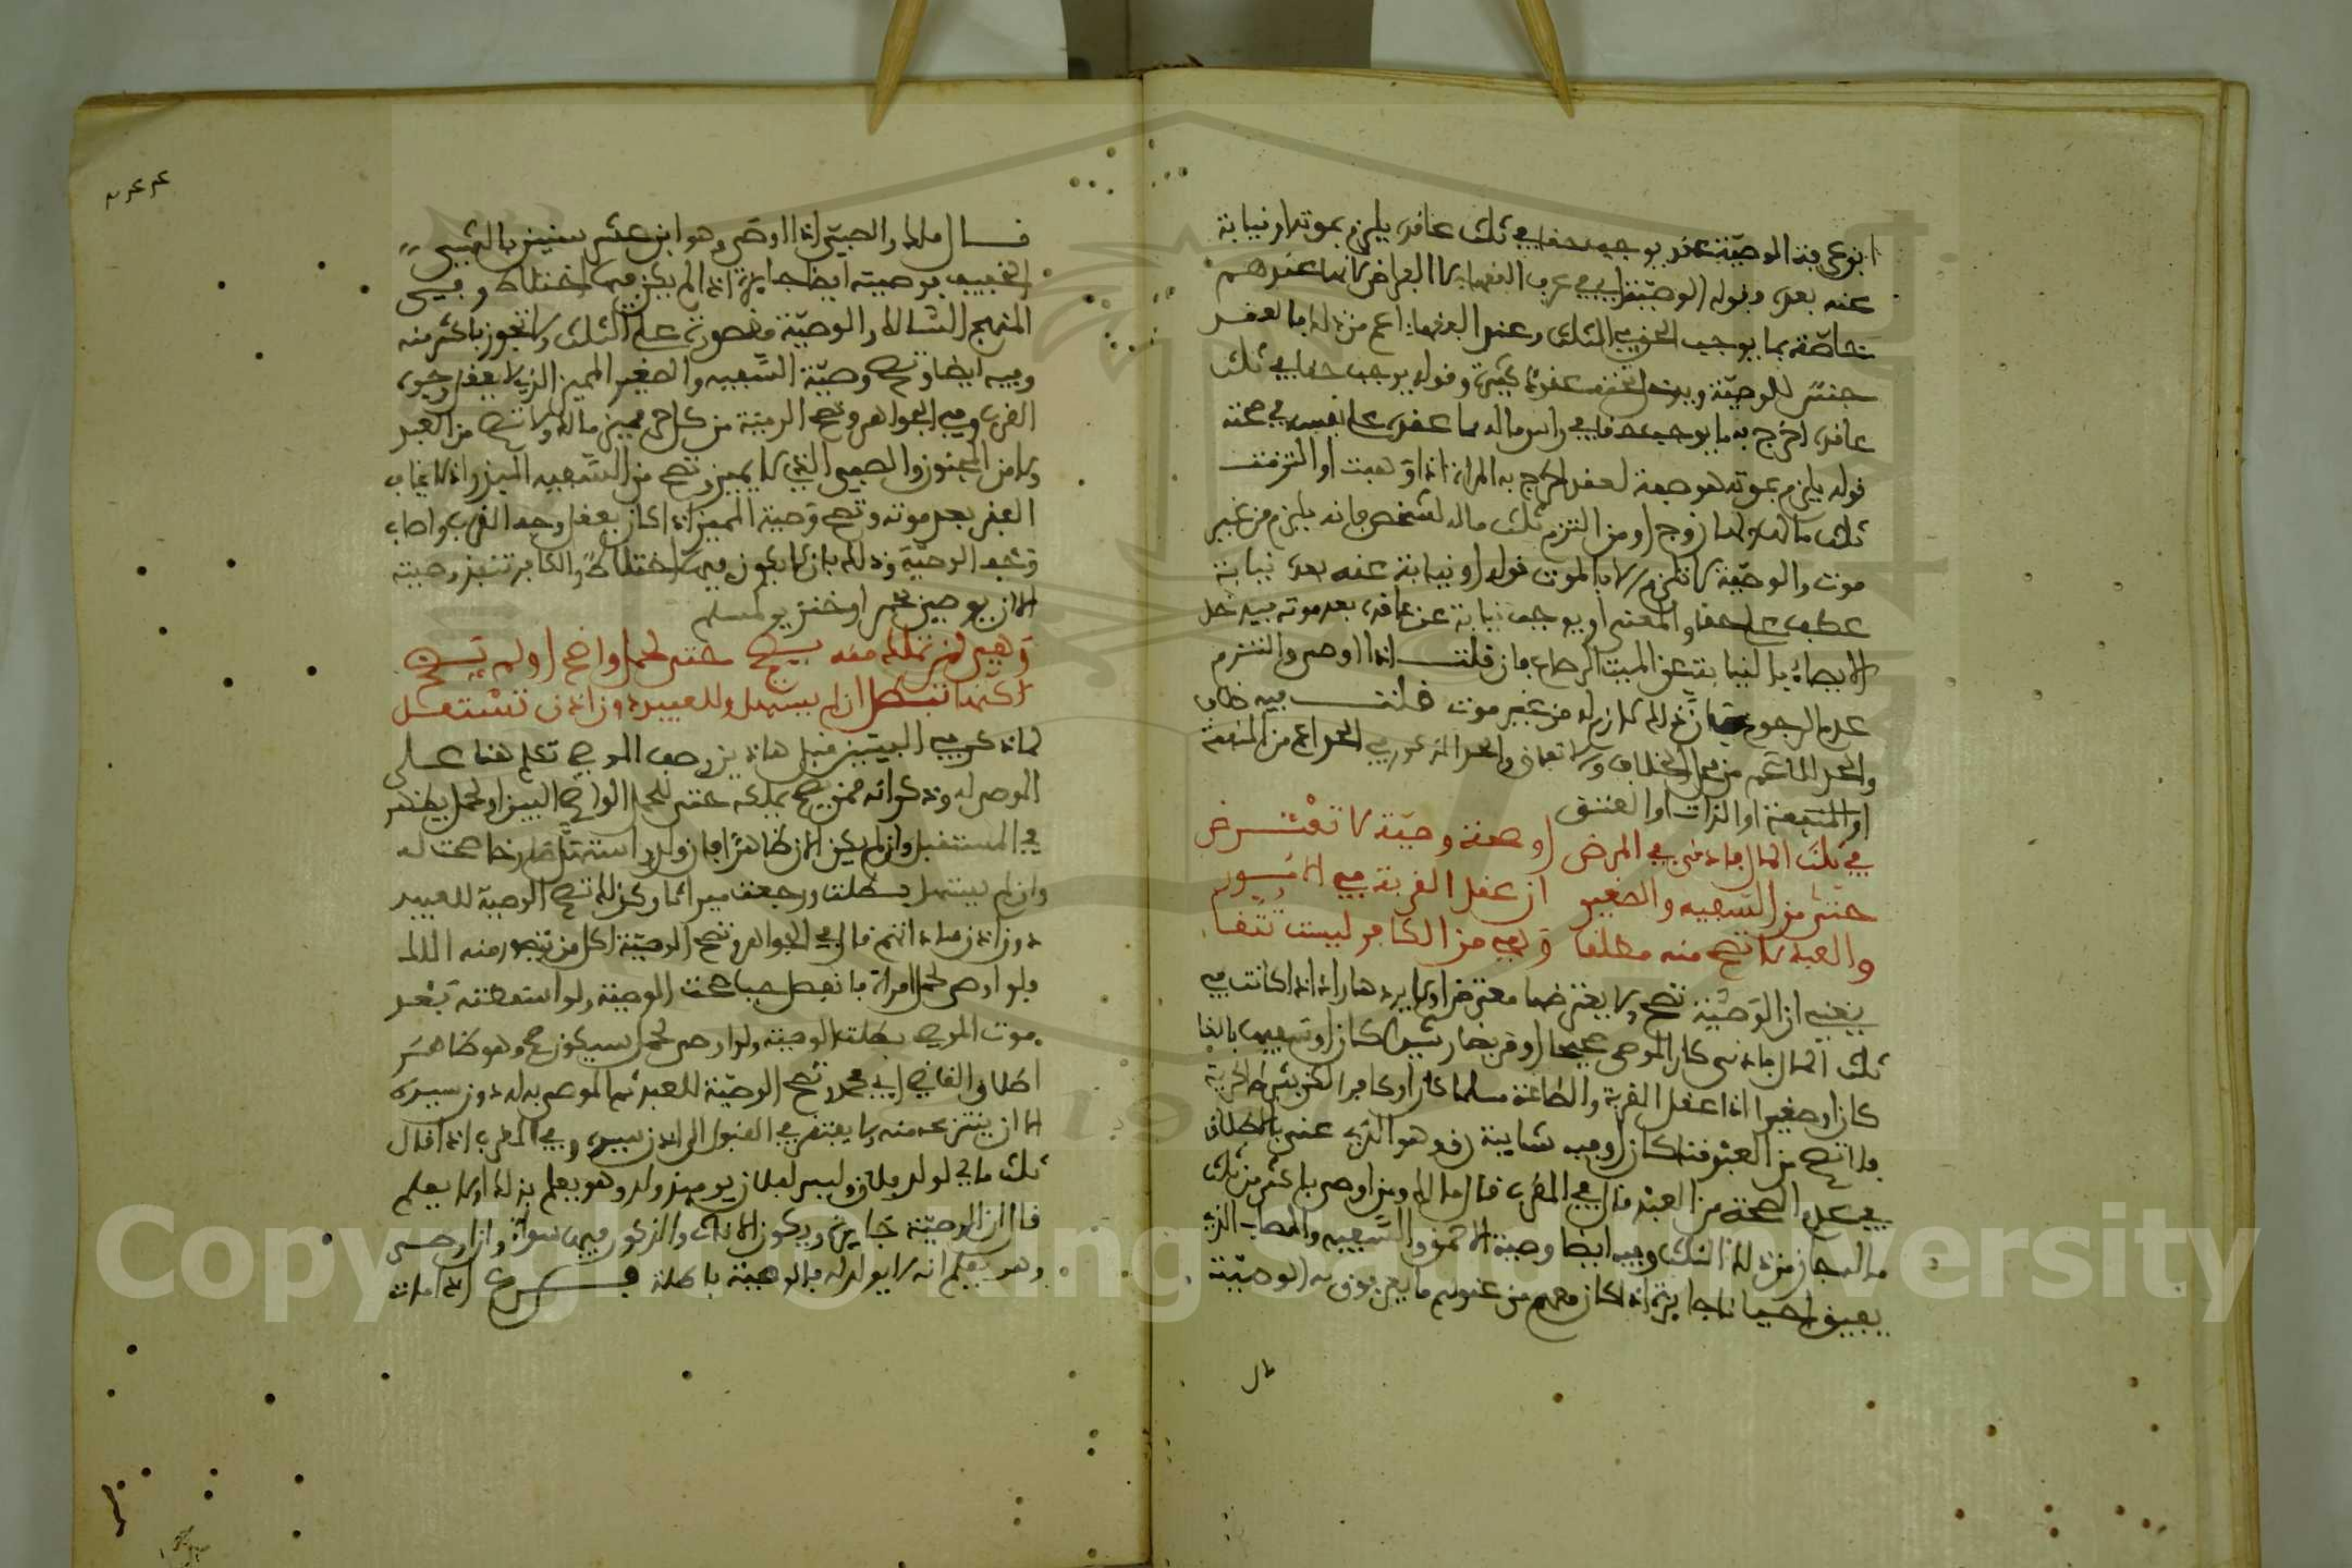 ابن عرفة الوصية عقد يوجب حقا في ثلث عاقده يلزم بموته او نيابة
عنه بعده وقوله الوصية اي في عرف الفقهاء لا الفراض لانها عندهم
خاصة بما يوجب الحق في الثلث وعند الفقهاء اعم من ذلك فالعقد
جنس للوصية وقوله يوجب حقا في ثلث
عاقده اخرج به ما يوجب حقا في راس ماله مما عقده على نفسه في صحته
قوله يلزم بموته هو صفة لعقد اخرج به المراة اذا وهبت او التزمت
ثلث مالها ولها زوج او من التزم ثلث ماله لشخص فانه يلزم من غير
موت والوصية لا تلزم الا بالموت قوله او نيابة عنه بعده نيابة
عطف على حقا والمعنى او يوجب نيابة عن عاقده بعد موته فيدخل
الايصاء بالنيابة عن الميت فان قلت اذا اوصى والتزم
عدم الرجوع فان ذلك لازم له من غير موت قلت فيه خلاف
والحد انما هو من محل الخلاف والحد المذكور في الحد اعم من المنفعة
او المنفعة او الذات او العتق
في ثلث المال فادنى في المرض او صحة وصية لا تفترض
حتى من السفيه والصغير ان عقل القربة في الامور
والعبد لا تصح منه مطلقا وهي من الكافر ليست تتقا
يعني ان الوصية تصح ولا يعترضها معترض ولا يردها راد اذا كانت في
ثلث المال فادنى كان الموصي صحيحا او مريضا رشيدا كان او سفيها بالغا
كان او صغيرا اذا عقل القربة والطاعة مسلما كان او كافرا لكن بشرط الحرية
فلا تصح من العبد قنا كان او فيه شايبة رق وهو الذي عنى بالاطلاق
في عدم الصحة من العبد قال في المقرب قال مالك ومن اوصى باكثر من ثلث
ماله جاز من ذلك الثلث وفيه ايضا وصية الاحمق والسفيه والمصاب الذي
يفيق احيانا جايزة اذا كان معهم من عقولهم ما يعرفون به الوصية
قال
قال مالك والصبي اذا اوصى وهو ابن عشر سنين بالشيء
الخفيف فوصيته ايضا جايزة اذا لم يكن فيها اختلاط وفي
المنهج السالك والوصية مقصورة على الثلث ولا تجوز باكثر منه
وفيه ايضا وتصح وصية السفيه والصغير المميز الذي يعقل وجوه
القرب وفي الجواهر وتصح الوصية من كل حر مميز مالك ولا تصح من العبد
ولا من المجنون والصبي الذي لا يميز وتصح من السفيه المبذر اذ لا يخاف
الفقر بعد موته وتصح وصية المميز اذا كان يعقل وجه القرب واصاب
وجه الوصية وذلك بان لا يكون فيها اختلاط والكافر تنفذ وصيته
الا ان يوصي بخمر او خنزير لمسلم
وهي لمن تملكه منه يصح حتى لحمل واضح او لم يصح
لكنها تبطل ان لم يستهل وللعبيد دون اذن تستعمل
لما ذكر في البيتين قبل هاذين وصف الموصي تكلم هنا على
الموصى له وذكر انه ممن يصح تملكه حتى للحمل الواضح البين او لحمل يظهر
في المستقبل وان لم يكن الان ظاهرا فان ولد واستهل صارخا صحت له
وان لم يستهل بطلت ورجعت ميراثا وكذلك تصح الوصية للعبيد
دون اذن ساداتهم قال في الجواهر وتصح الوصية لكل من يتصور منه الملك
فلو اوصى لحمل امراة فانفصل حيا صحت الوصية ولو اسقطته بعد
موت الموصي بطلت الوصية ولو اوصى لحمل سيكون صح وهو ظاهر
اطلاق القاضي ابي محمد وتصح الوصية للعبد ثم الموصى به له دون سيده
الا ان ينتزعه منه ولا يفتقر في القبول الى اذن سيده وفي المقرب اذا قال
ثلث مالي لولد فلان وليس لفلان يوميذ ولد وهو يعلم بذلك او لا يعلم
قال ان الوصية جايزة ويكون الاناث والذكور فيها سواء وان اوصى
وهو يعلم انه لا يولد له فالوصية باطلة فرع اذا مات